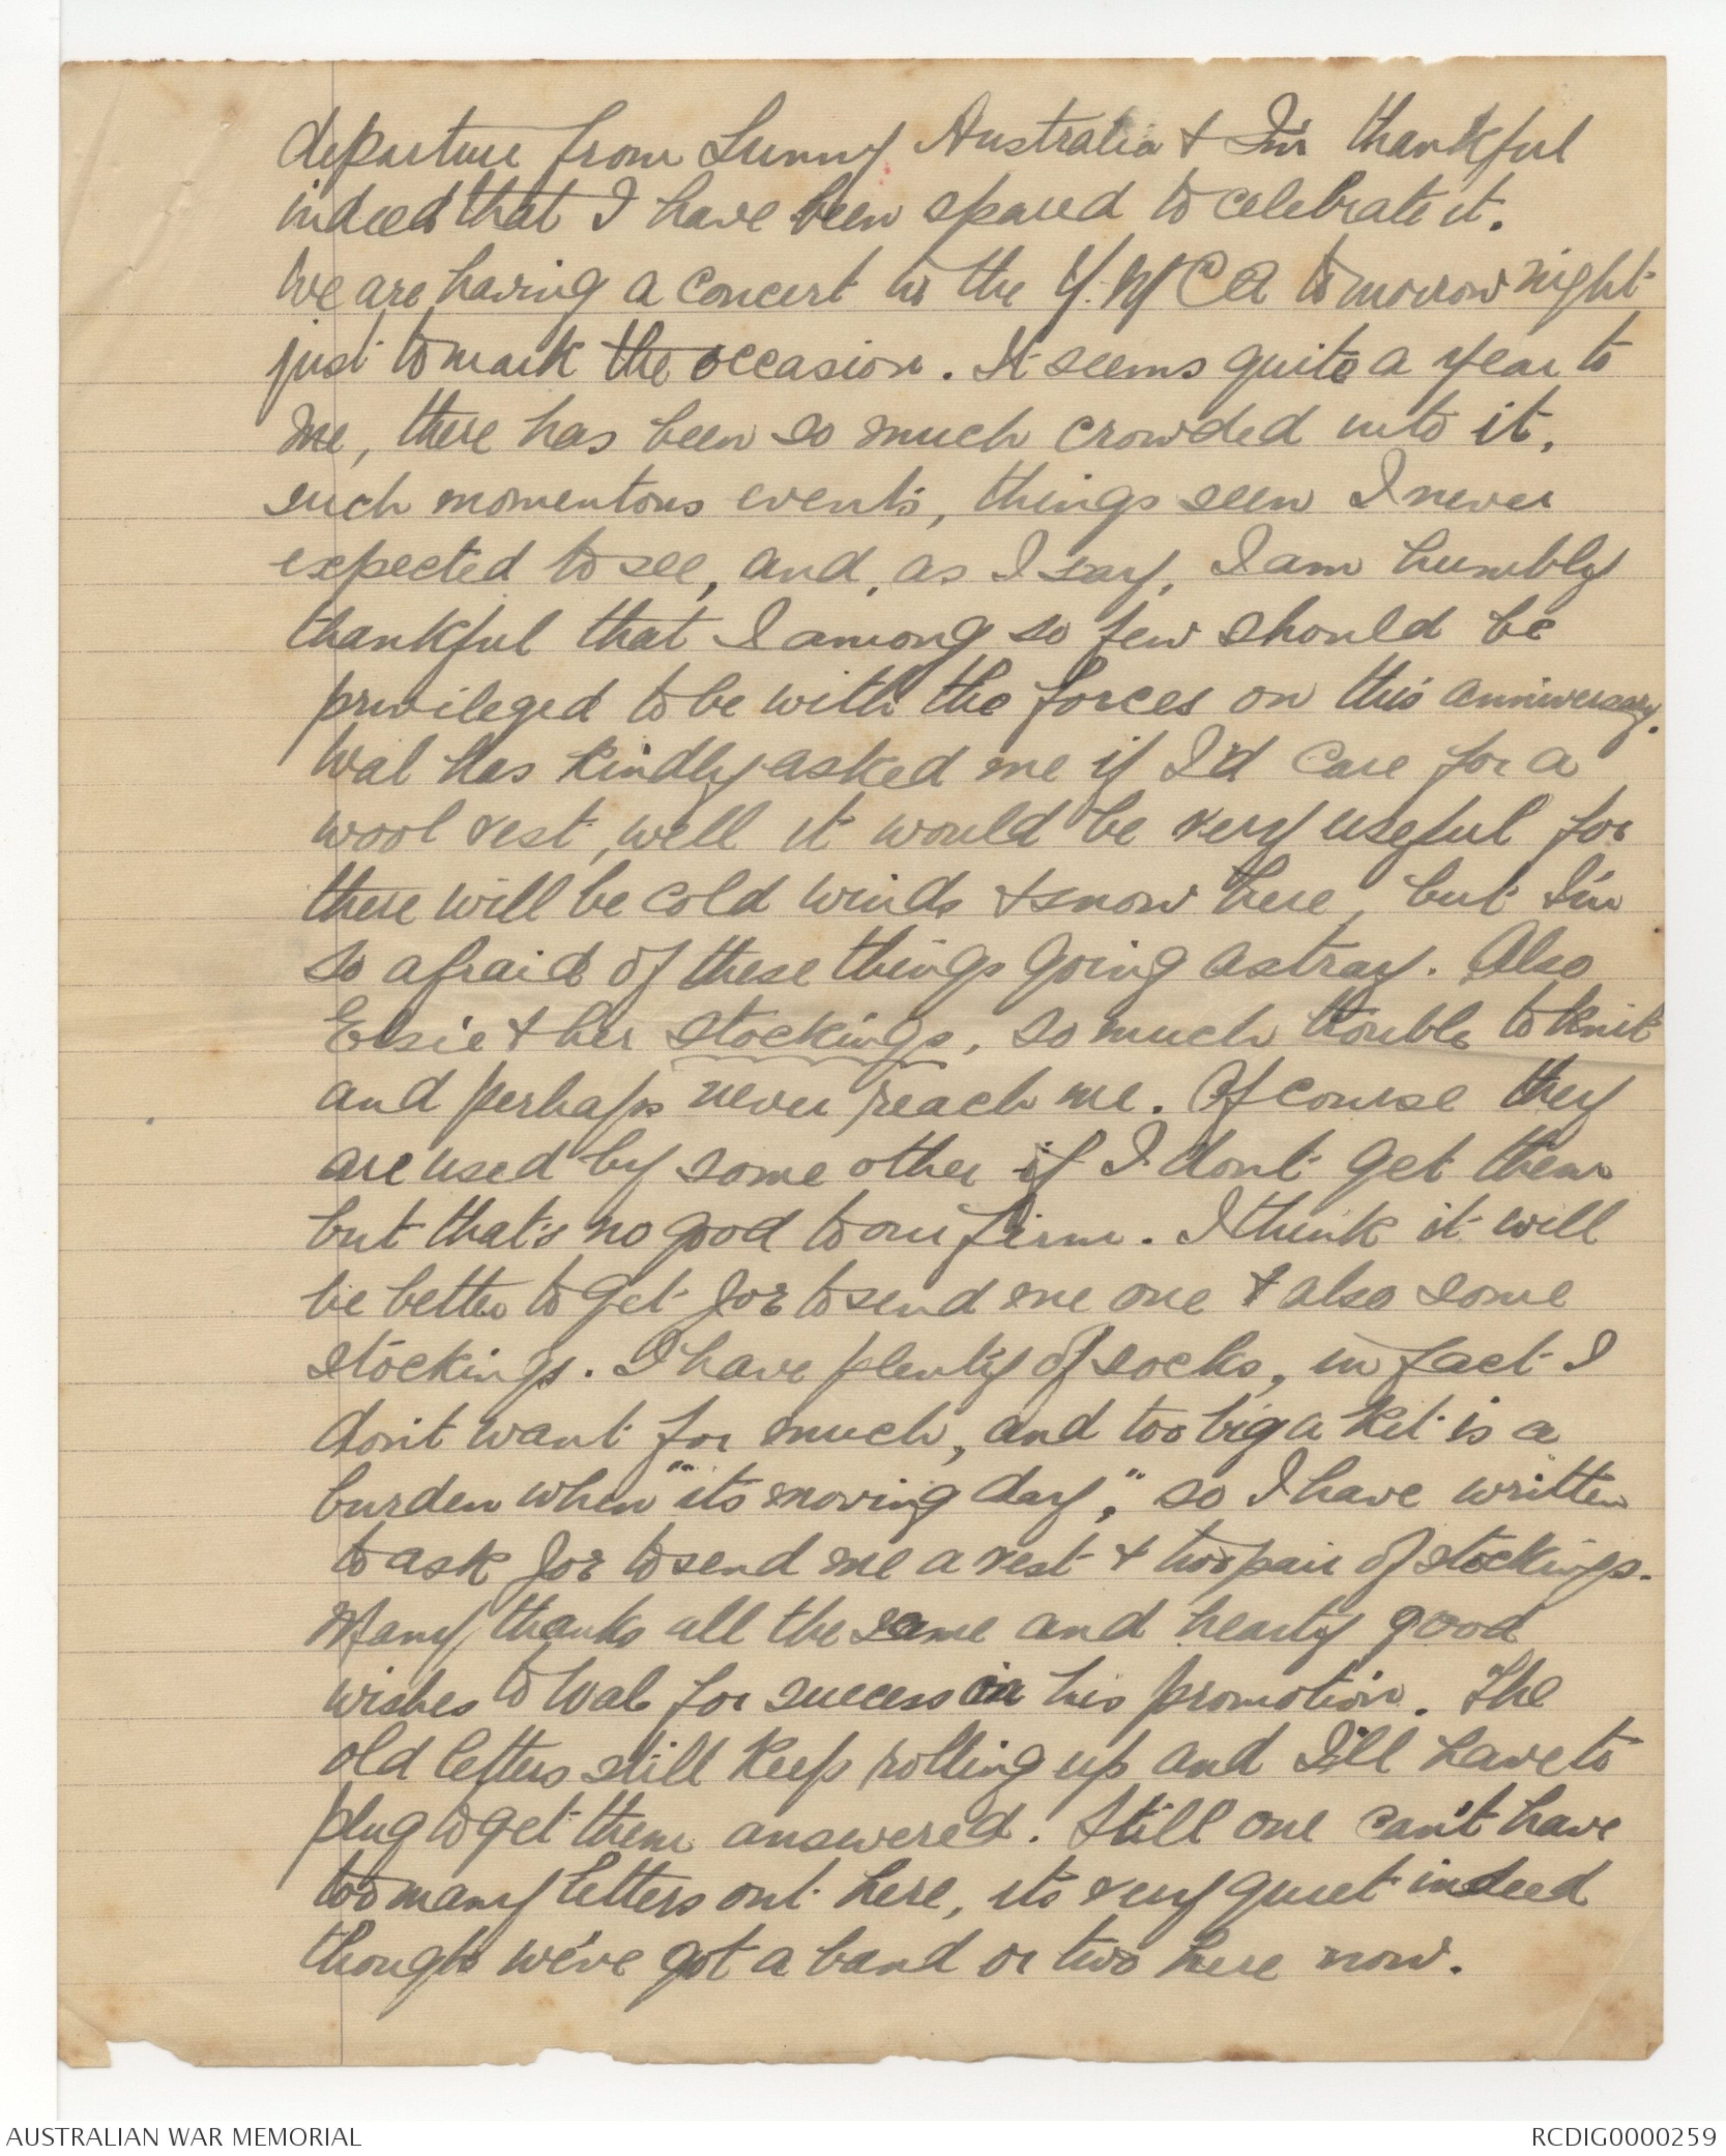 departure from Sunny Australia & I'm thankful
indeed that I have been spared to celebrate it.
We are having a concert in the Y.M C A tomorrow night
just to mark the occasion. It seems quite a year to
me, there has been so much crowded into it,
such momentous events, things seen I never
expected to see, and, as I say, I am humbly
thankful that I among so few should be
privileged to be with the forces on this anniversary.
Wal has kindly asked me if I'd care for a
wool vest, well it would be very useful for
there will be cold winds & snow here, but I'm
so afraid of these things going astray. Also
Elsie & her stockings, so much trouble to knit
and perhaps never reach me. Of course they
are used by some other if I dont get them
but that's no good to our firm. I think it will
be better to get Joe to send me one & also some
stockings. I have plenty of socks, in fact I
don't want for much, and too big a kit is a
burden when "its moving day," so I have written
to ask Joe to send me a vest & two pair of stockings.
Many thanks all the same and hearty good
wishes to Wal for success in his promotion. The
old letters still keep rolling up and I'll have to
plug to get them answered. Still one can't have
too many letters out here, its very quiet indeed
though we've got a band or two here now.
AUSTRALIAN WAR MEMORIAL
RCDIG0000259